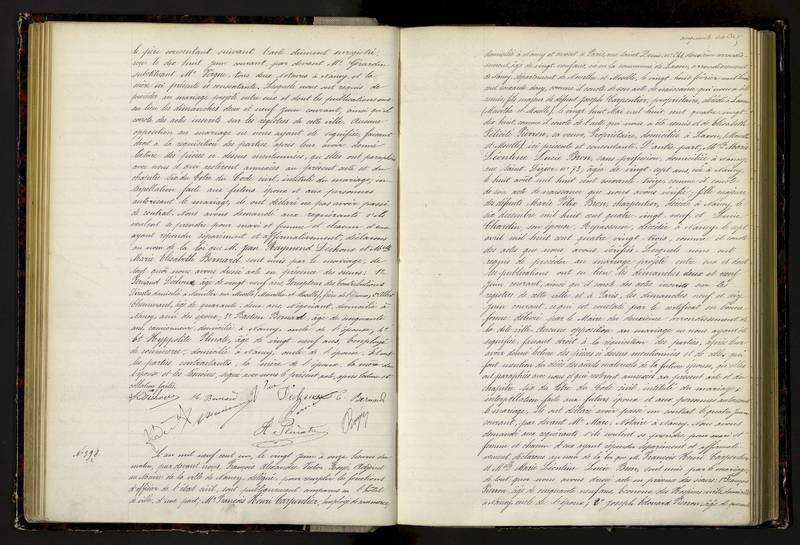 le père consentant suivant l'acte dûment enregistré
reçu le dix huit juin courant par devant Me Girardin
substituant Me Vergne, tous deux notaires à Nancy et la
mère ici présente et consentante. Lesquels nous ont requis de
procéder au mariage projeté entre eux et dont les publications ont
eu lieu les dimanches deux et neuf juin courant, ainsi qu'il
conste des actes inscrits sur les registres de cette ville. Aucune
opposition au mariage ne nous ayant été signifiée, faisant
droit à la réquisition des parties après leur avoir donné
lecture des pièces ci-dessus mentionnées, qu'elles ont paraphées
avec nous et qui resteront annexées au présent acte et du
chapitre six du Titre du Code civil, intitulé du mariage, sur
interpellation faite aux futurs époux et aux personnes
autorisant le mariage, ils ont déclaré ne pas avoir passé
de contrat. Nous avons demandé aux requérants s'ils
veulent se prendre pour mari et femme et chacun d'eux
ayant répondu séparément et affirmativement, déclarons
au nom de la loi que M. Jean Raymond Déchoux et Mlle
Marie Elisabeth Bernard sont unis par le mariage, de
tout quoi nous avons dressé acte en présence des sieurs: 1°
Fernand Déchoux, âgé de vingt neuf ans, Percepteur des Contributions
Directes domicilié à (Meurthe et Moselle), frère de l'époux, 2° Albert
âgé de quarante deux ans, Négociant, domicilié à
Nancy, ami des époux; 3° Bernard, âgé de cinquante
ans, camionneur, domicilié à Nancy, oncle de l'épouse, 4°
et Hyppolite Pierrate, âgé de vingt neuf ans, Employé
de commerce, domicilié à Nancy, oncle de l'épouse. Et ont
les parties contractantes, la mère de l'époux, la mère de
l'épouse et les témoins, signé avec nous le présent acte, après lecture et
collation faites.
Déchoux
E. Bernard
H. Pierrate
N° 398
L'an mil neuf cent un, le vingt juin à onze heures du
matin, par devant nous François Alexandre Victor Adjoint
au Maire de la ville de Nancy, délégué pour remplir les fonctions
d'officier de l'état civil, sont publiquement comparus en l'hôtel
de ville, d'une part, Mr François Henri Carpentier, employé de commerce,
domicilié à Nancy et avant à Paris, rue Saint Denis, deuxième arrondis-
sement, âgé de vingt neuf ans, né en la commune de arrondissement
de Nancy, département de Meurthe et Moselle, le vingt huit février mil huit
cent soixante douze, comme il conste de son acte de naissance, qui nous a été
remis, fils majeur de défunt Joseph Carpentier, propriétaire, décédé à
(Meurthe et Moselle), le vingt huit Mai mil huit cent quatre vingt
dix huit, comme il conste de l'acte qui nous a été remis et de Elisabeth
Félicité Pierron, sa veuve, Propriétaire, domiciliée à (Meurthe
et Moselle), ici présente et consentante. D'autre part, Mlle Marie
Léontine Lucie Bron, sans profession, domiciliée à Nancy,
rue Saint Dizier, âgée de vingt sept ans, née à Nancy,
août mil huit cent soixante treize, comme il conste
de son acte de naissance que nous avons vérifié; fille majeure
de défunts Marie Félix Bron, charpentier, décédé à Nancy, le
six décembre mil huit cent quatre vingt neuf et Lucie
Chardin, son épouse, Repasseuse, décédée à Nancy, le sept
avril mil huit cent quatre vingt trois, comme il conste
des actes que nous avons vérifiés. Lesquels nous ont
requis de procéder au mariage projeté entre eux et dont
les publications ont eu lieu les dimanches deux et neuf
juin courant, ainsi qu'il conste des actes inscrits sur les
registres de cette ville et à Paris, les dimanches neuf et
juin courant selon qu'il est constaté par le certificat en bonne
forme délivré par le Maire du deuxième arrondissement de
la dite ville. Aucune opposition au mariage ne nous ayant été
signifiée, faisant droit à la réquisition des parties, après leur
avoir donné lecture des pièces ci-dessus mentionnées et de celles qui
font mention du décès des aïeuls maternels de la future épouse, qu'elles
ont paraphées avec nous et qui resteront annexées au présent acte et du
chapitre six du Titre du Code civil, intitulé du mariage;
interpellation faite aux futurs époux et aux personnes autorisant
le mariage, ils ont déclaré avoir passé un contrat le quatre juin
courant, par devant Me Marc, Notaire à Nancy. Nous avons
demandé aux requérants s'ils veulent se prendre pour mari et
femme et chacun d'eux ayant répondu séparément et affirmati-
vement, déclarons au nom de la loi que M. François Henri Carpentier
et Mlle Marie Léontine Lucie Bron, sont unis par le mariage,
de tout quoi nous avons dressé acte en présence des sieurs: 1° François
Pierron, âgé de cinquante neuf ans, domicilié
à Nancy, oncle de l'époux; 2° Joseph Edouard Pierron, âgé de